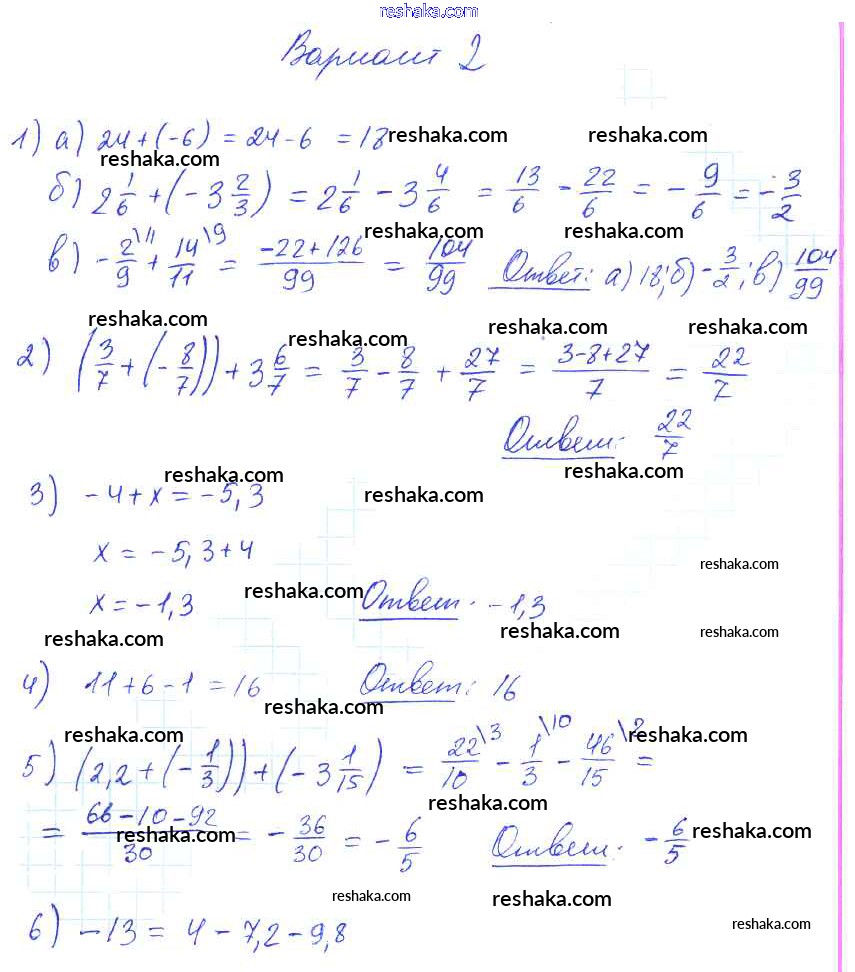 reshaka.com
Вариант 2
1) а) 24 + (-6) = 24 - 6 = 18 reshaka.com reshaka.com
reshaka.com
б) 2 1/6 + (-3 2/3) = 2 1/6 - 3 4/6 = 13/6 - 22/6 = - 9/6 = - 3/2
reshaka.com reshaka.com
в) - 2/9 \11 + 14/11 \9 = (-22+126)/99 = 104/99 Ответ: а) 18; б) - 3/2; в) 104/99
reshaka.com reshaka.com reshaka.com reshaka.com
2) (3/7 + (- 8/7)) + 3 6/7 = 3/7 - 8/7 + 27/7 = (3-8+27)/7 = 22/7
Ответ: 22/7
reshaka.com reshaka.com reshaka.com
3) -4 + x = -5,3
x = -5,3+4
reshaka.com
reshaka.com
x = -1,3 Ответ: -1,3
reshaka.com reshaka.com reshaka.com
4) 11+6-1=16 Ответ: 16
reshaka.com
reshaka.com reshaka.com
5) (2,2 + (- 1/3)) + (-3 1/15) = 22/10 \3 - 1/3 \10 - 46/15 \2 =
reshaka.com
= (66-10-92)/30 = - 36/30 = - 6/5 Ответ: - 6/5
reshaka.com reshaka.com
reshaka.com reshaka.com
6) -13 = 4 - 7,2 - 9,8
reshaka.com